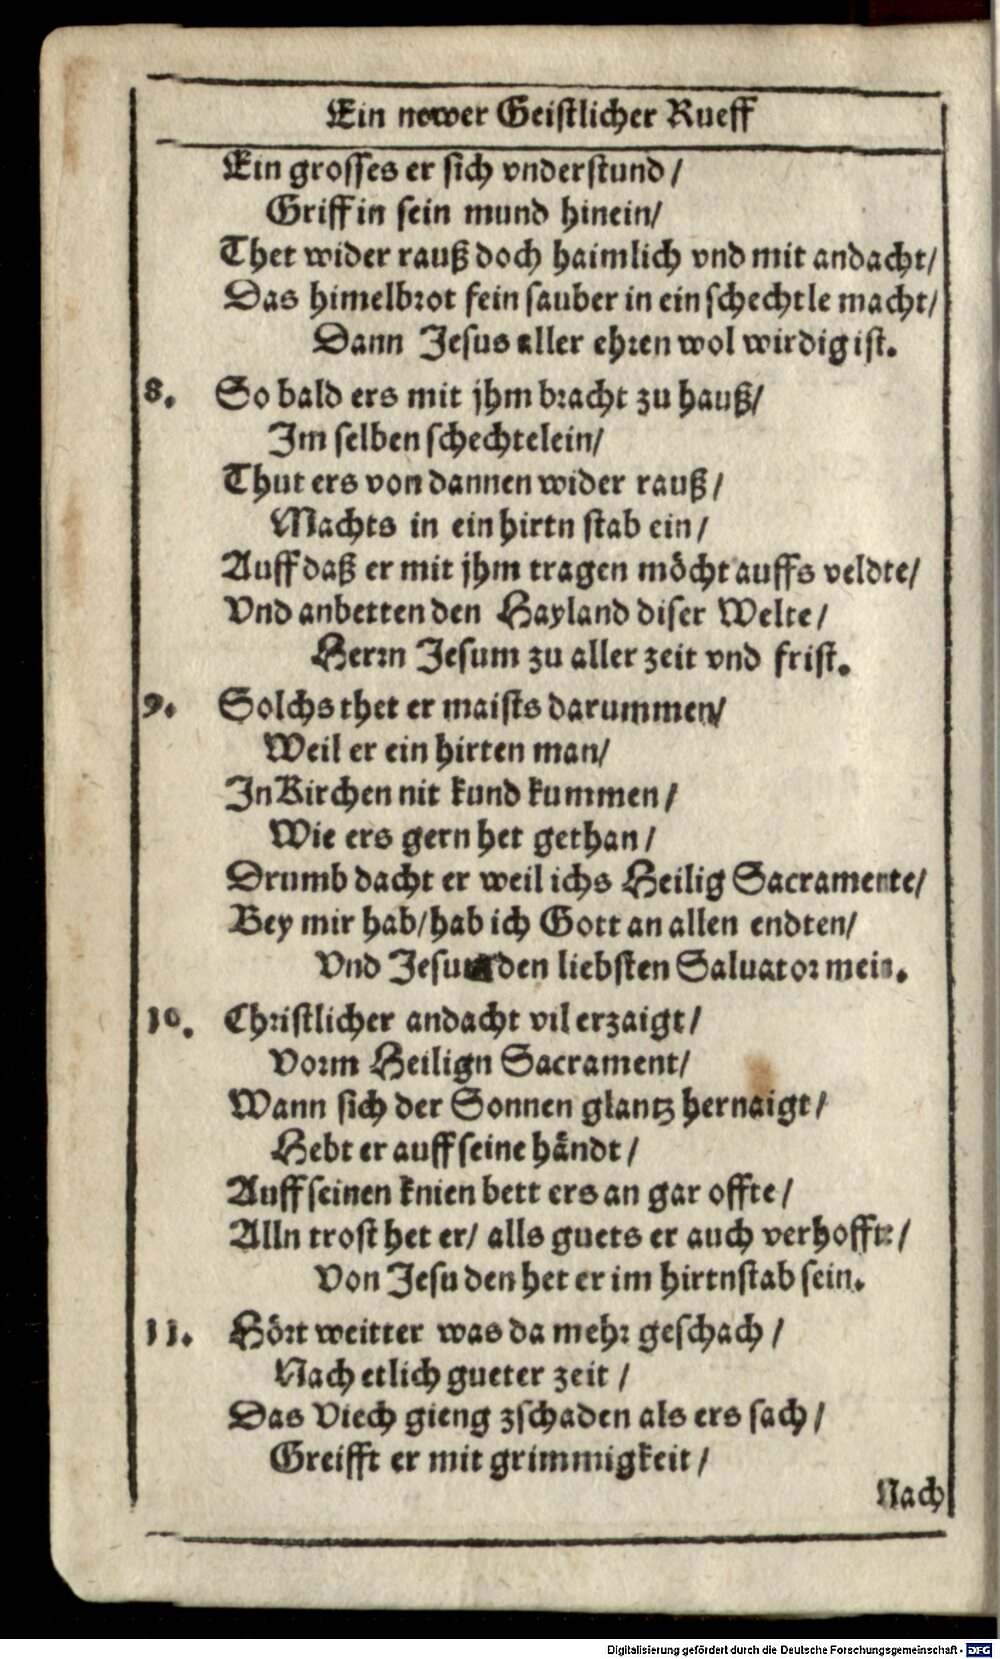 Ein newer Geistlicher Rueff
Ein grosses er sich vnderstund /
Griff in sein mund hinein/
Thet wider rauß doch haimlich vnd mit andacht/
Das himelbrot fein sauber in ein schechtle macht/
Dann Jesus aller ehren wol wirdig ist.
8. So bald ers mit jhm bracht zu hauß/
Im selben schechtelein/
Thut ers von dannen wider rauß /
Machts in ein hirtn stab ein /
Auff daß er mit jhm tragen möcht auffs veldte/
Vnd anbetten den Hayland diser Welte /
Herrn Jesum zu aller zeit vnd frist.
9. Solchs thet er maists darummen/
Weil er ein hirten man/
In Kirchen nit kund kummen /
Wie ers gern het gethan /
Drumb dacht er weil ichs Heilig Sacramente/
Bey mir hab/ hab ich Gott an allen endten/
Vnd Jesum den liebsten Saluator mein.
10. Christlicher andacht vil erzaigt /
Vorm Heilign Sacrament/
Wann sich der Sonnen glantz hernaigt /
Hebt er auff seine händt /
Auff seinen knien bett ers an gar offte /
Alln trost het er/ alls guets er auch verhoffte /
Von Jesu den het er im hirtnstab sein.
11. Hört weitter was da mehr geschach /
Nach etlich gueter zeit /
Das Viech gieng zschaden als ers sach /
Greifft er mit grimmigkeit /
Nach
Digitalisierung gefördert durch die Deutsche Forschungsgemeinschaft - DFG